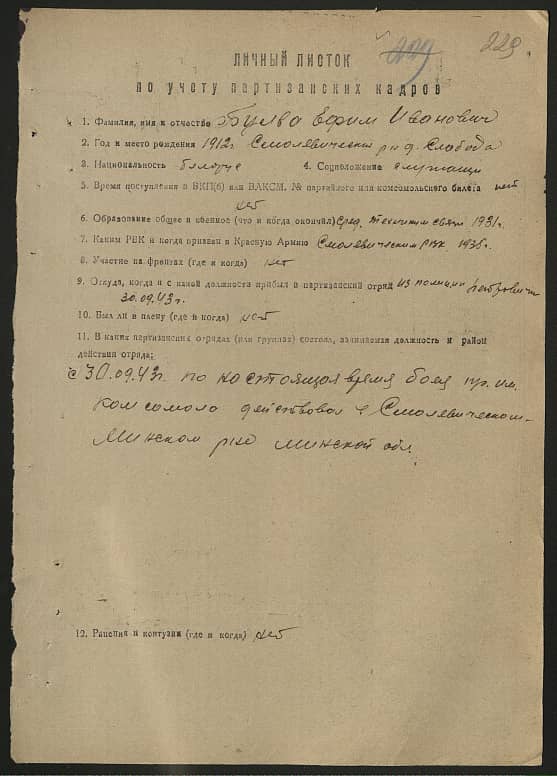 229.
ЛИЧНЫЙ ЛИСТОК
по учету партизанских кадров
1. Фамилия, имя и отчество Булва Ефим Иванович
2. Год и место рождения 1912г Смолевический р-н д. Слобода
3. Национальность белорус 4. Соцположение служащий
5. Время поступления в ВКП(б) или ВЛКСМ. № партийного или комсомольского билета нет
нет
6. Образование общее и военное (что и когда окончил) сред. техникум связи 1931г.
7. Каким РВК и когда призван в Красную Армию Смолевическим РВК 1935г.
8. Участие на фронтах (где и когда) нет
9. Откуда, когда и с какой должности прибыл в партизанский отряд из полиции Петровичи
30.09.43г.
10. Был ли в плену (где и когда) нет
11. В каких партизанских отрядах (или группах) состоял, занимаемая должность и район
действия отряда:
с 30.09.43г по настоящая время боец пр. им.
Комсомола действовал в Смолевическом-
Минском р-не Минской обл.
12. Ранения и контузии (где и когда) нет